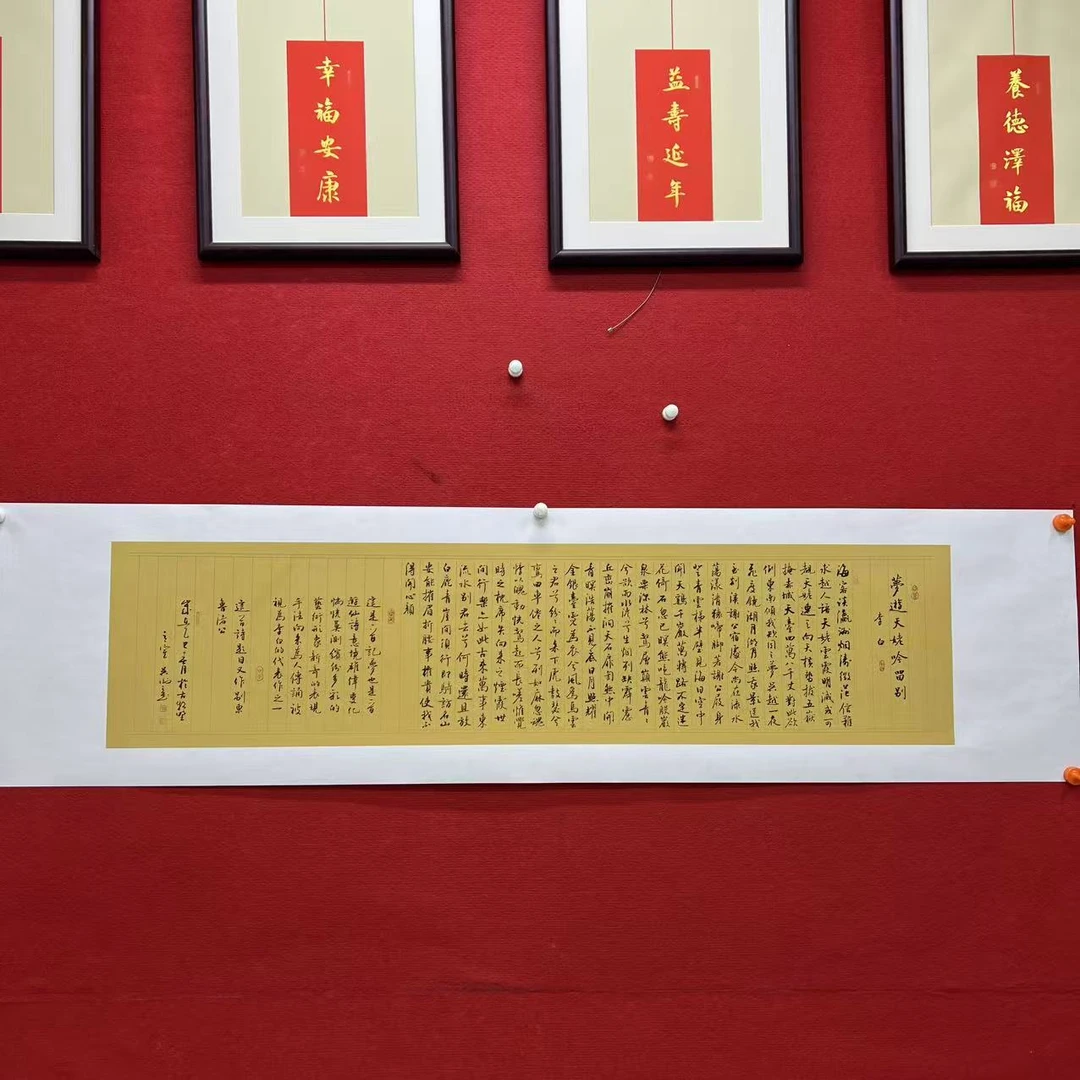 幸福安康
益壽延年
養德澤福
夢遊天姥吟留別
李白
海客談瀛洲烟濤微茫信難
求越人語天姥雲霞明滅或可
覩天姥連天向天橫勢拔五嶽
掩赤城天臺四萬八千丈對此欲
倒東南傾我欲因之夢吳越一夜
飛度鏡湖月湖月照我影送我
至剡溪謝公宿處今尚在淥水
蕩漾清猿啼脚著謝公屐身
登青雲梯半壁見海日空中
聞天鷄千巖萬轉路不定迷
花倚石忽已暝熊咆龍吟殷巖
泉慄深林兮驚層巔雲青々
兮欲雨水澹々兮生烟列缺霹靂
丘巒崩摧洞天石扉訇然中開
青暝浩蕩不見底日月照耀
金銀臺霓為衣兮風為馬雲
之君兮紛々而來下虎鼓瑟兮
鸞回車仙之人兮列如麻忽魂
悸以魄動怳驚起而長嗟惟覺
時之枕席失向來之煙霞世
間行樂亦如此古來萬事東
流水別君去兮何時還且放
白鹿青崖間須行即騎訪名山
安能摧眉折腰事權貴使我不
得開心顏
這是一首記夢也是一首
遊仙詩意境雄偉變化
惝怳莫測繽紛多彩的
藝術形象新奇的表現
手法向來為人傳誦被
視為李白的代表作之一
這首詩題目又作別東
魯諸公